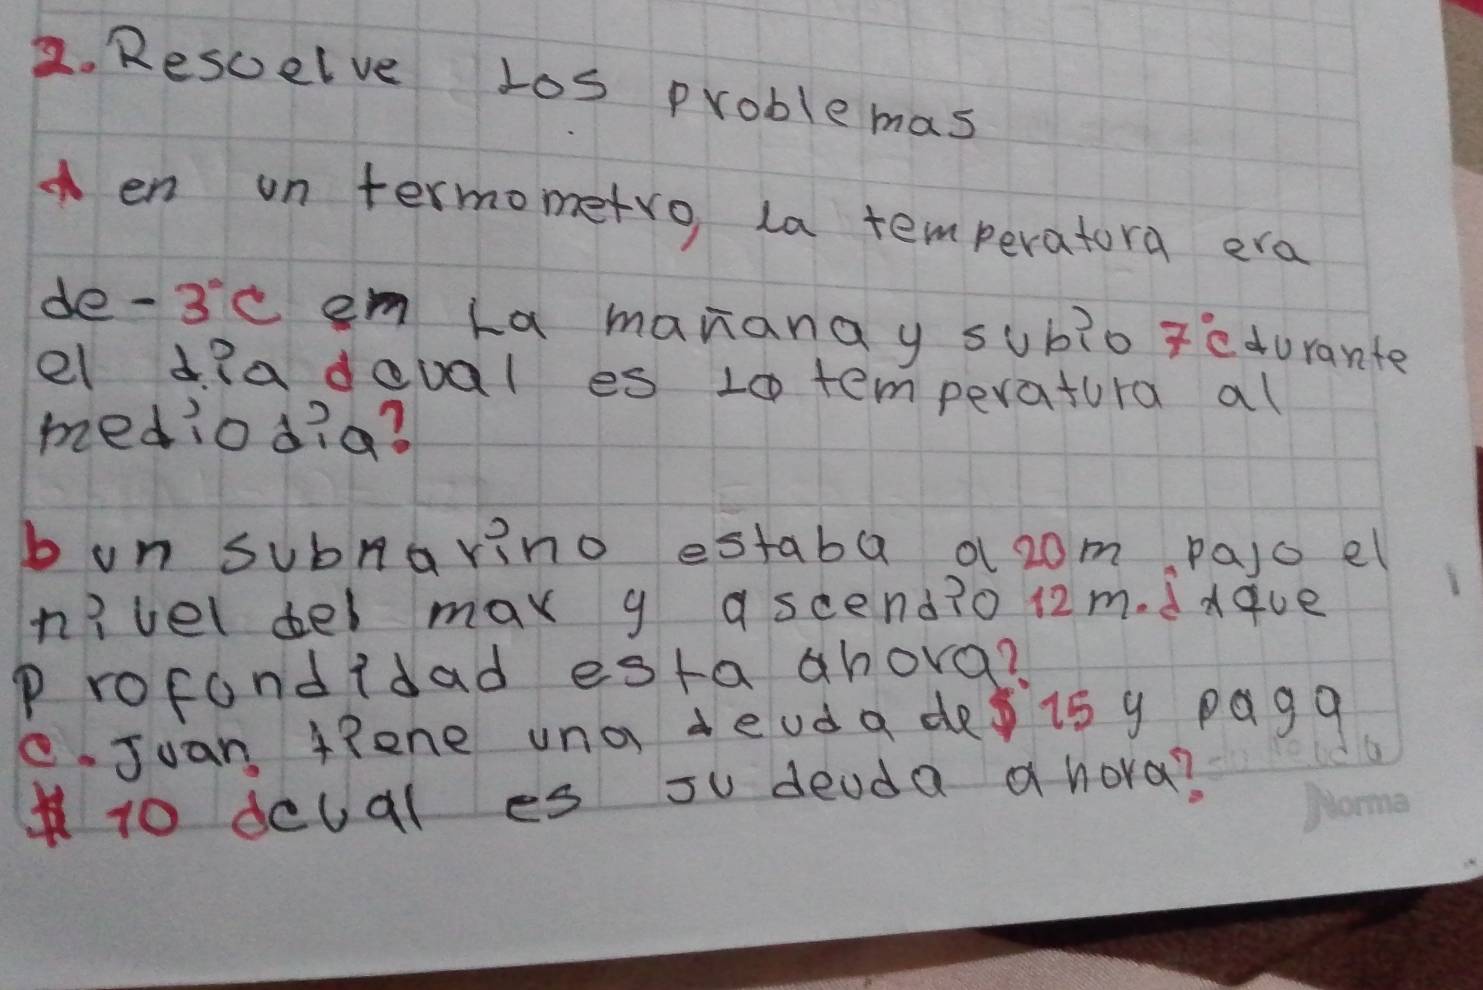 2. Resuelve Los problemas
A en un termometro, la temperatura era
de -3°C em La mañana y subio 7°c durante
el dia ¿cual es la temperatura al
mediodia?
b un submarino estaba a 20m bajo el
nivel del mar y ascendio 12 m. ¿A que
profundidad esta ahora?
c. Juan tiene una deuda de $ 15 y paga
$ 10 ¿cual es su deuda ahora?
Norma